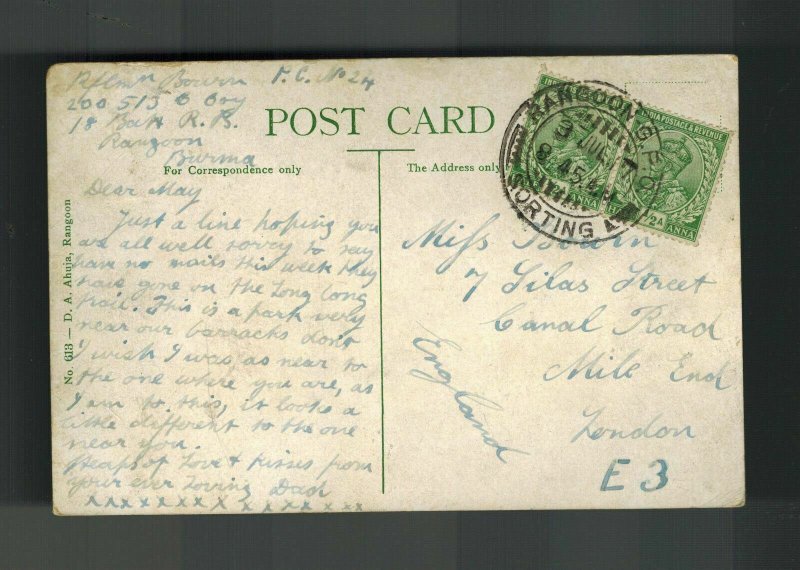 Rflmn Bowrn P.C. No 24
200513 D Coy
18 Batt R.B.
Rangoon
Burma
POST CARD
For Correspondence only
The Address only
Dear May
Just a line hoping you
are all well sorry to say
have no mails this week they
have gone on the Long Long
trail. This is a park very
near our barracks dont
I wish I was as near to
the one where you are, as
I am to this, it looks a
little different to the one
near you.
Heaps of Love & kisses from
your ever loving Dad
x x x x x x x x x x x x x x x
No. 613 — D. A. Ahuja, Rangoon
RANGOON G.P.O.
3 JUL 17
8.45 A.M.
SORTING
INDIA POSTAGE & REVENUE
1/2 A
ANNA
Miss Bowrn
7 Silas Street
Canal Road
Mile End
London
E 3
England